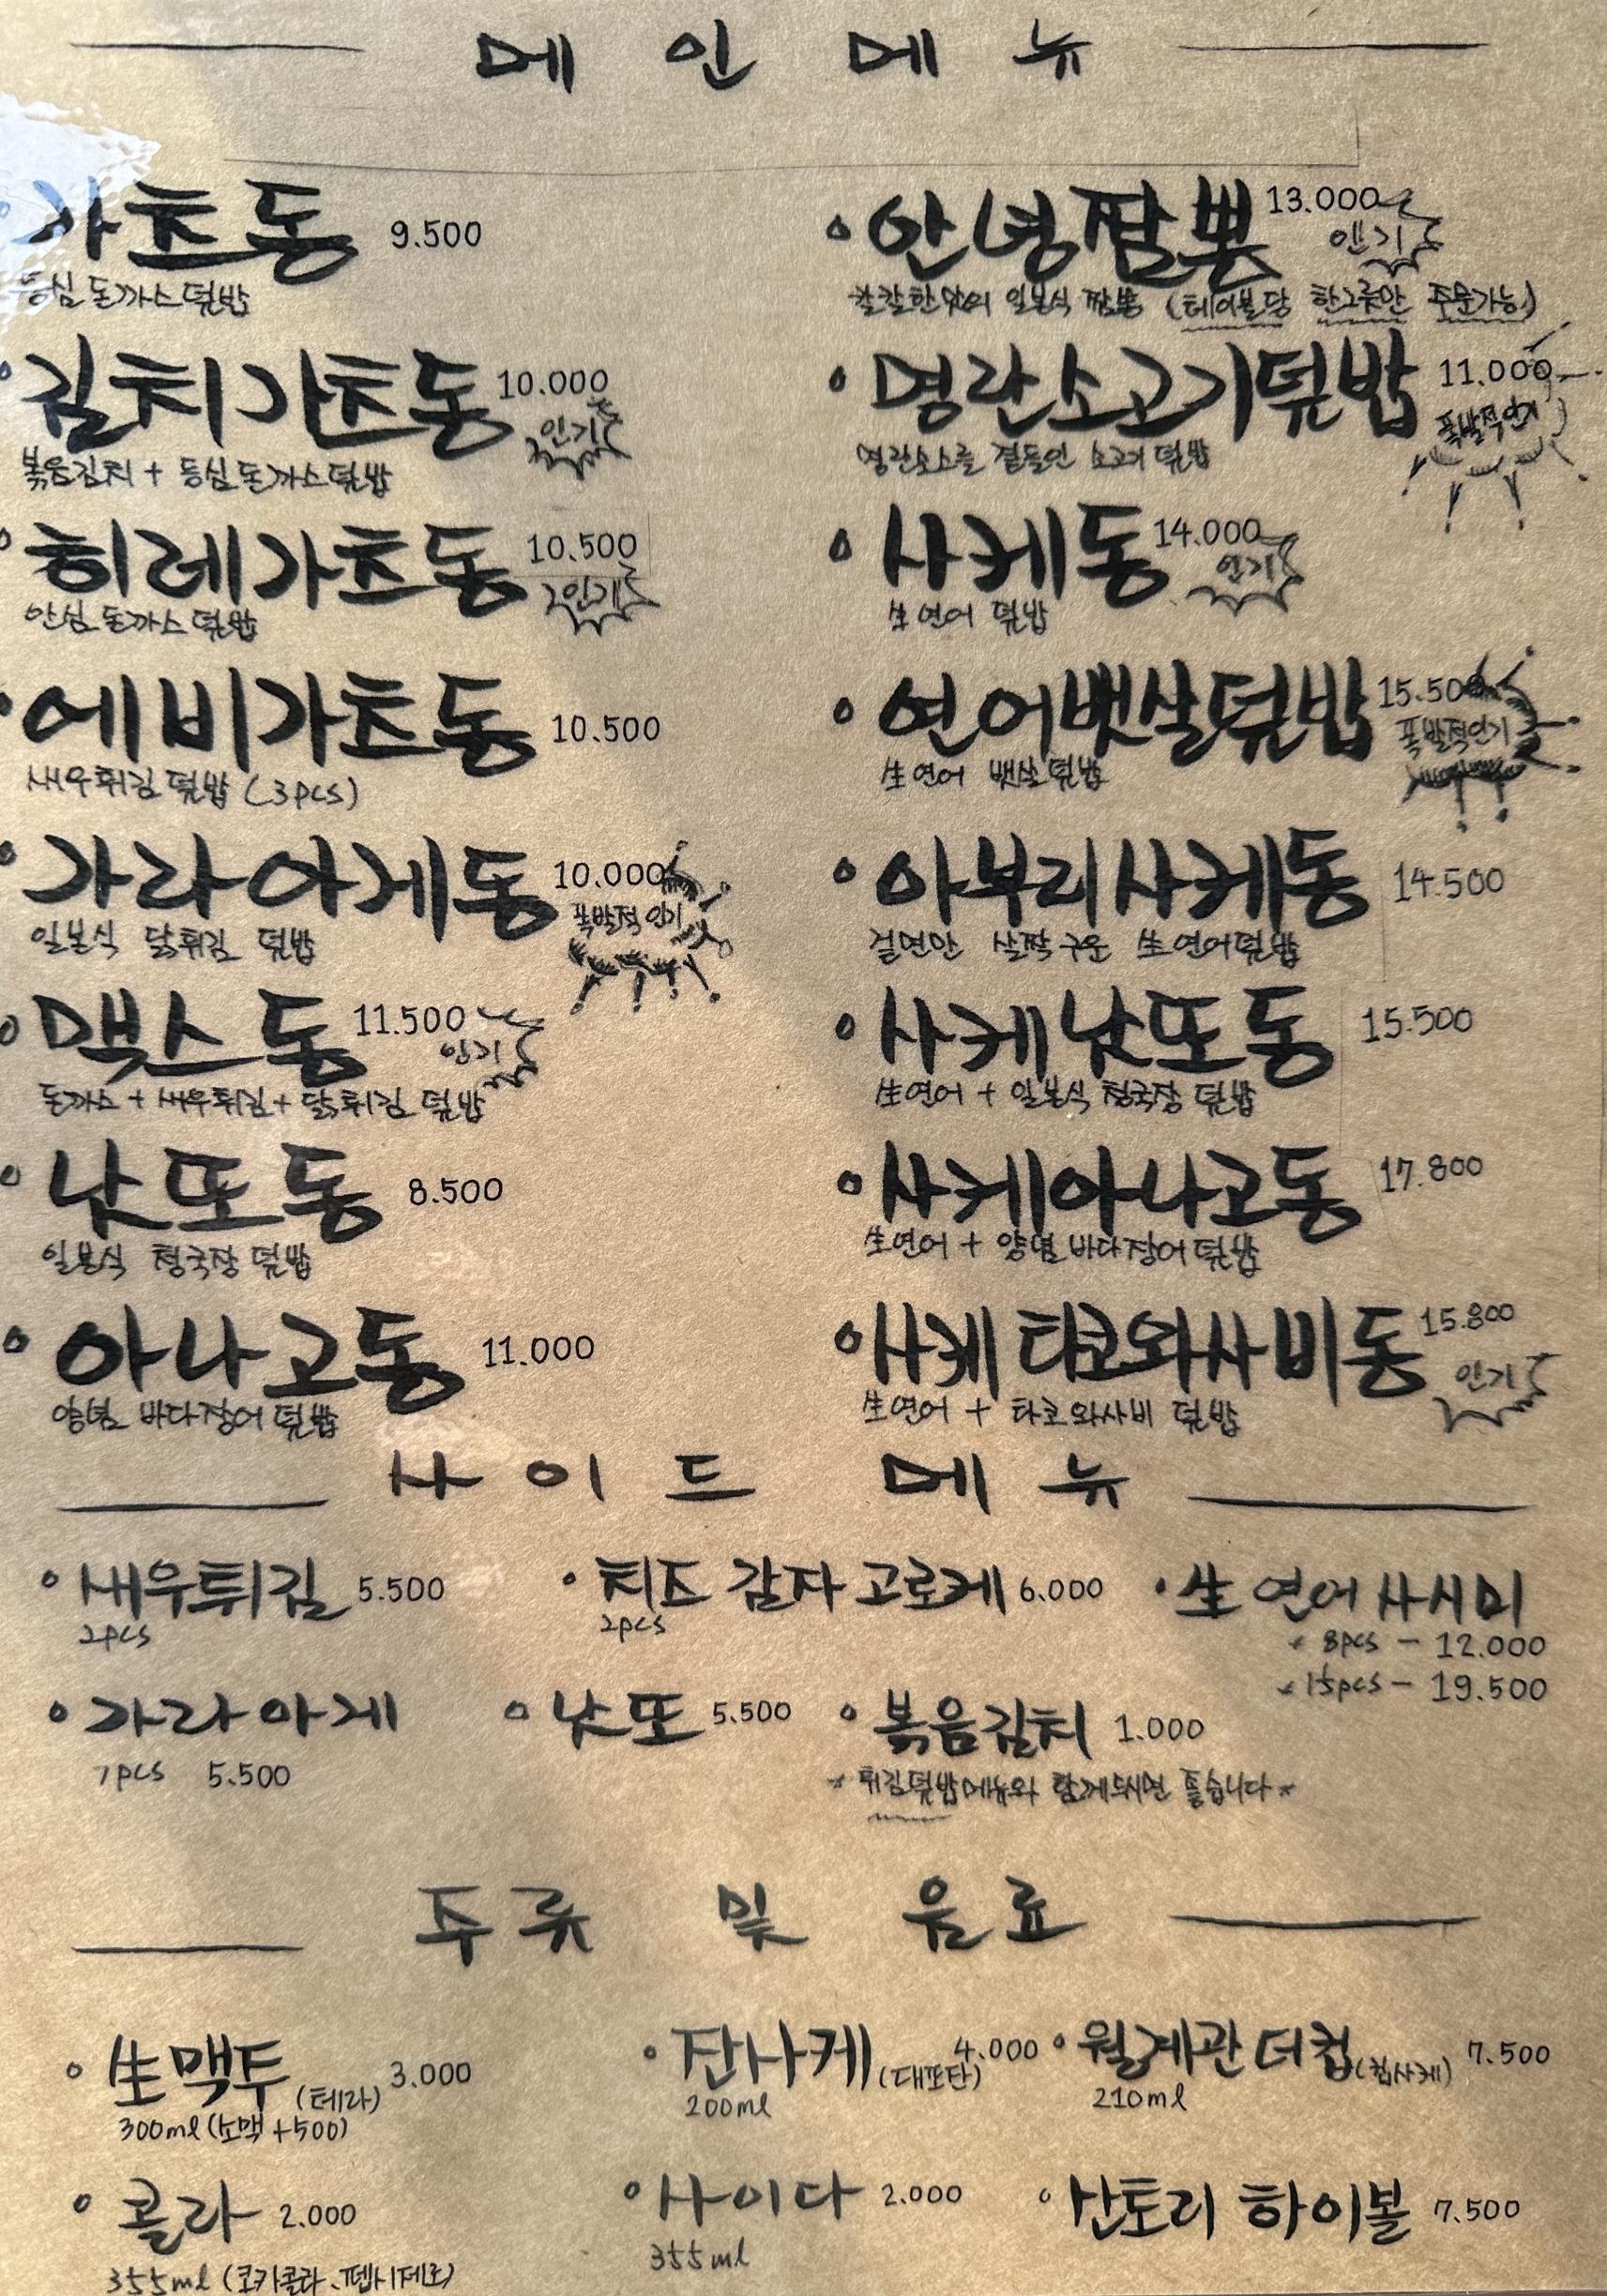 메인메뉴
가츠동 9.500
등심 돈까스 덮밥
김치가츠동 10.000
인기
볶음김치 + 등심 돈까스 덮밥
히레가츠동 10.500
인기
안심 돈까스 덮밥
에비가츠동 10.500
새우튀김 덮밥 (3pcs)
가라아게동 10.000
폭발적 인기
일본식 닭튀김 덮밥
맥스동 11.500
인기
돈까스 + 새우튀김 + 닭튀김 덮밥
낫또동 8.500
일본식 청국장 덮밥
아나고동 11.000
양념 바다장어 덮밥
안녕짬뽕 13.000
인기
칼칼한맛의 일본식 짬뽕 (테이블당 한그릇만 주문가능)
명란소고기덮밥 11.000
폭발적인기
명란소스를 곁들인 소고기 덮밥
사케동 14.000
인기
生연어 덮밥
연어뱃살덮밥 15.500
폭발적인기
生연어 뱃살 덮밥
아부리사케동 14.500
겉면만 살짝 구운 生연어덮밥
사케낫또동 15.500
生연어 + 일본식 청국장 덮밥
사케아나고동 17.800
生연어 + 양념 바다장어 덮밥
사케타코와사비동 15.800
인기
生연어 + 타코와사비 덮밥
사이드 메뉴
새우튀김 5.500
2pcs
치즈 감자 고로케 6.000
2pcs
生 연어 사시미
8pcs - 12.000
15pcs - 19.500
가라아게
7pcs 5.500
낫또 5.500
볶음김치 1.000
* 튀김덮밥메뉴와 함께드시면 좋습니다 *
주류 및 음료
生맥주 (테라) 3.000
300ml (소맥 +500)
잔사케 (대포잔) 4.000
200ml
월계관 더컵 (컵사케) 7.500
210ml
콜라 2.000
355ml (코카콜라, 펩시제로)
사이다 2.000
355ml
산토리 하이볼 7.500